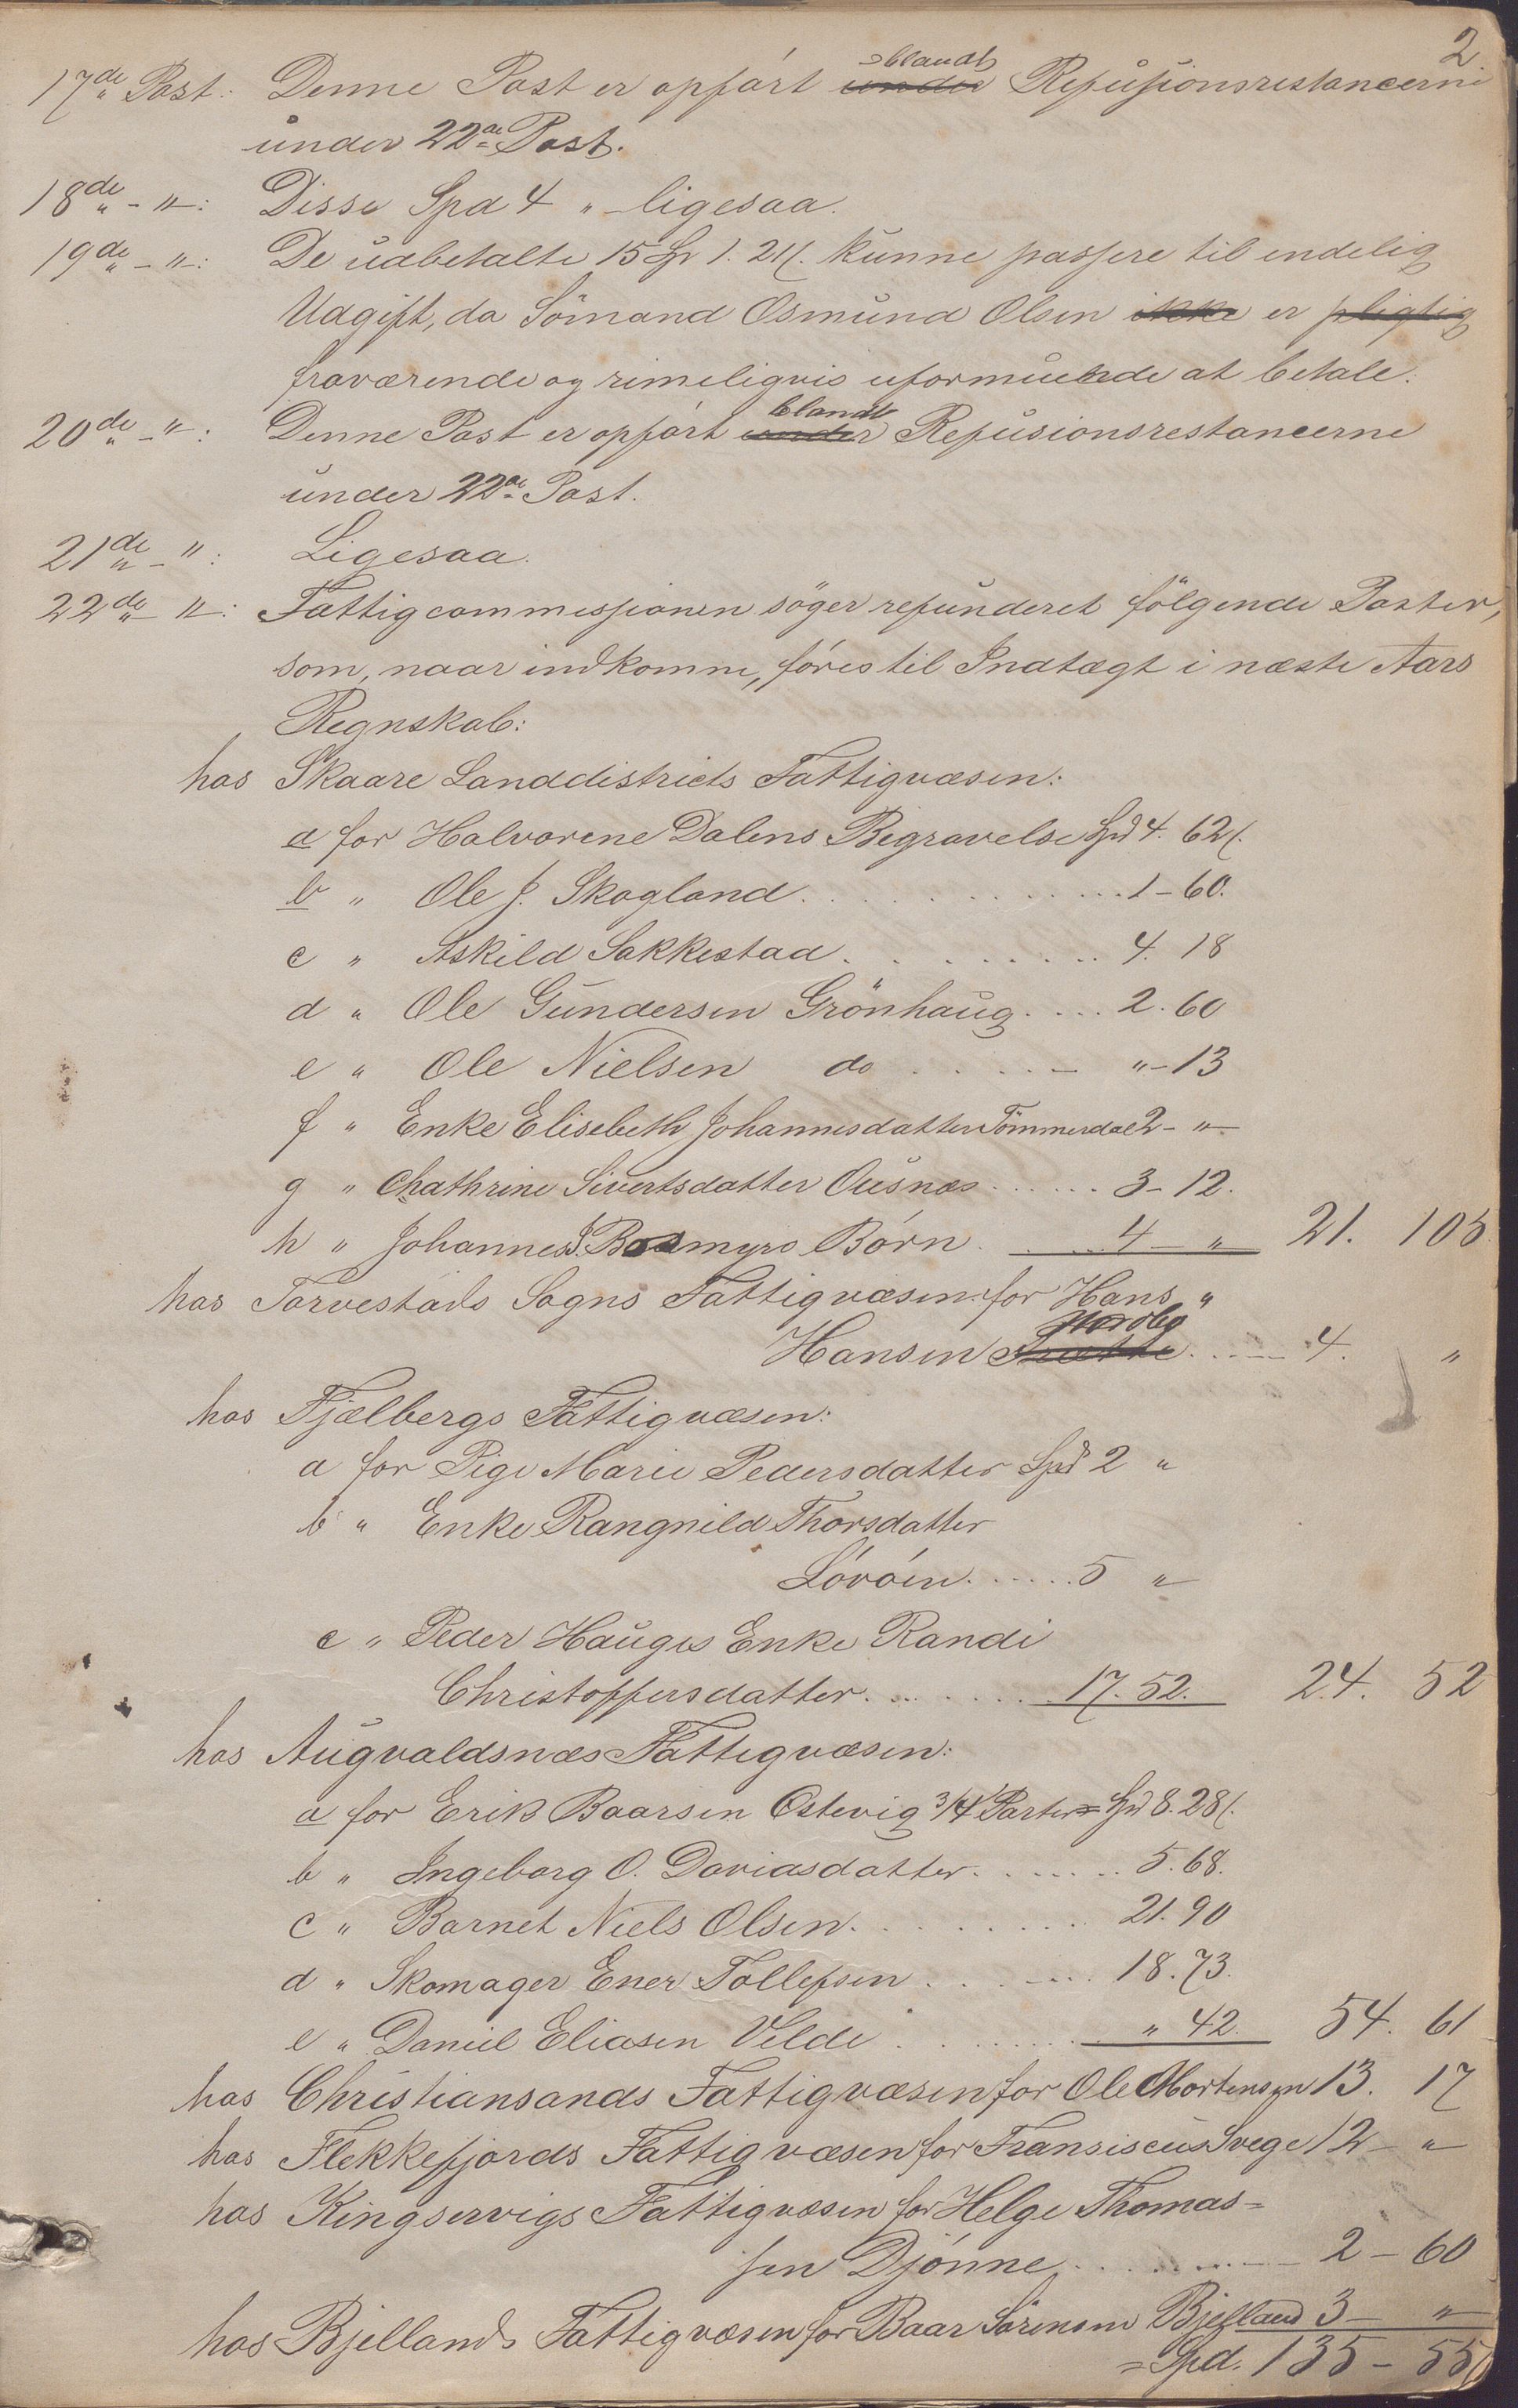 2
17de Post: Denne Post er opført ~~under~~ blandt Refusionsrestancerne
under 22de Post.
18de - " -: Disse Spd 4 " - ligesaa.
19de - " -: De udbetalte 15 Sp 1. 21 s. kunne passere til endelig
Udgift, da Sömand Osmund Olsen ~~ikke~~ er ~~pligtig~~
fraværende og rimeligvis uformuende at betale.
20de - " -: Denne Post er opført ~~under~~ blandt Refusionsrestancerne
under 22de Post.
21de - " : Ligesaa.
22de - " -: Fattigcommissionen söger refunderet fölgende Poster,
som, naar indkomne, føres til Indtægt i næste Aars
Regnskab:
hos Skaare Landdistricts Fattigvæsen:
a for Halvorene Dalens Begravelse Spd 4. 62 s.
b " Ole J. Skogland . . . . . . . 1 - 60.
c " Askild Sakkestad . . . . . . . 4. 18
d " Ole Gundersen Grönhaug . . . . 2. 60
e " Ole Nielsen do . . . . - " - 13
f " Enke Elisebeth Johannesdatter Tömmerdal 2 - " -
g " Chathrine Sivertsdatter Ousnæs . . . . . 3 - 12.
h " Johannes J. Bosmyrs Børn . . . . 4 - " 21. 105
hos Torvestads Sogns Fattigvæsen for Hans "
Hansen Nordbø . . . - 4. "
hos Fjælbergs Fattigvæsen:
a for Pige Marie Pedersdatter Spd 2 "
b " Enke Rangnild Thorsdatter
Løvøen . . . . . . 5 "
c " Peder Hauges Enke Randi
Christoffersdatter . . . . . . 17. 52. 24. 52
hos Augvaldsnæs Fattigvæsen:
a for Erik Baarsen Ostevig 3/4 Parter = Spd 8. 28 s.
b " Ingeborg O. Daviasdatter . . . . . . 5. 68.
c " Barnet Niels Olsen . . . . . . . 21. 90
d " Skomager Ener Tollefsen . . . . . . 18. 73.
e " Daniel Eliasen Velde . . . . . . " 42. 54. 61
hos Christiansands Fattigvæsen for Ole Mortensen 13. 17
hos Flekkefjords Fattigvæsen for Fransiscus Svege 12 - "
hos Kingservigs Fattigvæsen for Helge Thomas=
sen Djønne . . . . . . 2 - 60
hos Bjellands Fattigvæsen for Baar Sörensen Bjelland 3 - "
= Spd. 135 - 55 s